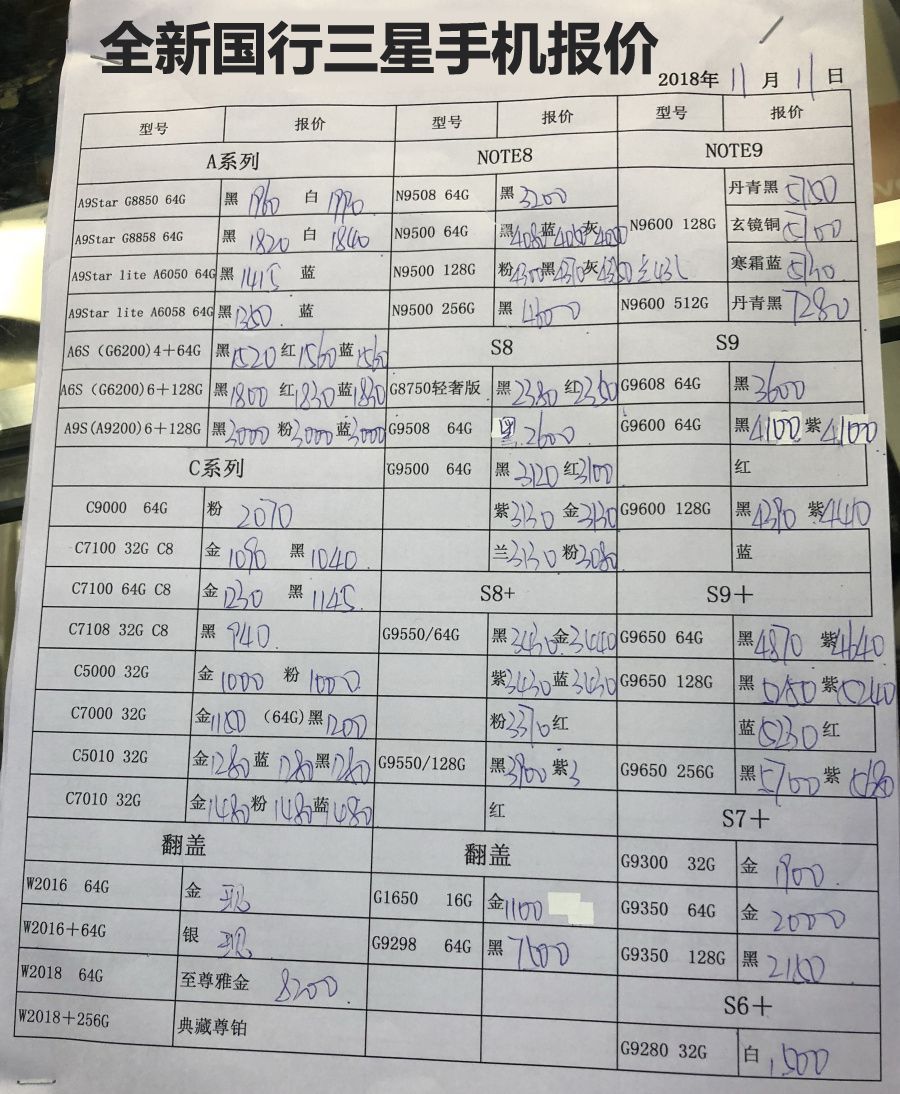 全新国行三星手机报价
2018年 11 月 11 日
型号 报价 型号 报价 型号 报价
A系列 NOTE8 NOTE9
A9Star G8850 64G 黑 1960 白 1990 N9508 64G 黑 3200 N9600 128G 丹青黑
A9Star G8858 64G 黑 1820 白 1840 N9500 64G 黑4080蓝4060灰 玄镜铜 5100
A9Star lite A6050 64G 黑1415 蓝 N9500 128G 粉4300黑4370灰 寒霜蓝 5130
A9Star lite A6058 64G 黑1350 蓝 N9500 256G 黑 4600 N9600 512G 丹青黑 7280
A6S (G6200)4+64G 黑1520 红1560 蓝1560 S8 S9
A6S (G6200)6+128G 黑1800 红1830 蓝1830 G8750轻奢版 黑2380 红2350 G9608 64G 黑3600
A9S(A9200)6+128G 黑3000 粉3000 蓝3000 G9508 64G 黑 2600 G9600 64G 黑4100 紫4100
C系列 G9500 64G 黑 3120 红3100 红
C9000 64G 粉 2070 紫3130 金3130 G9600 128G 黑4390 紫4440
C7100 32G C8 金 1090 黑 1040 兰3130 粉3080 蓝
C7100 64G C8 金 1230 黑 1145 S8+ S9＋
C7108 32G C8 黑 940 G9550/64G 黑3430金3440 G9650 64G 黑4870 紫4640
C5000 32G 金 1000 粉 1000 紫3430蓝3430 G9650 128G 黑 紫5240
C7000 32G 金1150 (64G)黑1200 粉3370红 蓝5230 红
C5010 32G 金1280蓝 1280黑1280 G9550/128G 黑3900 紫3 G9650 256G 黑5700 紫5680
C7010 32G 金1480粉 1480蓝1480 红 S7＋
翻盖 翻盖 G9300 32G 金 1900
W2016 64G 金 现 G1650 16G 金1100 G9350 64G 金 2000
W2016＋64G 银 现 G9298 64G 黑 7600 G9350 128G 黑 2150
W2018 64G 至尊雅金 8200 S6＋
W2018＋256G 典藏尊铂 G9280 32G 白 1500